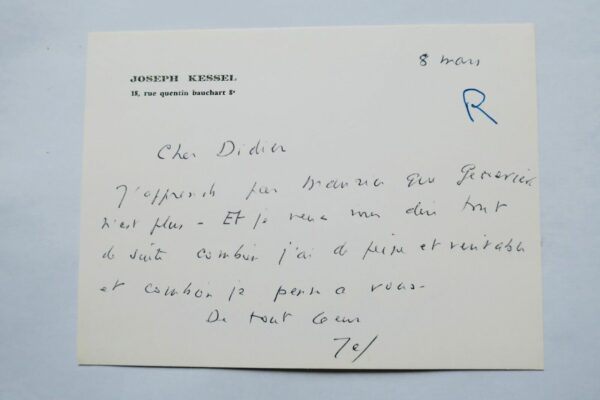 JOSEPH KESSEL
18, rue quentin bauchart 8e
8 mars
R
Cher Didier
J'apprends par que Geneviève
n'est plus - Et je veux vous dire tout
de suite combien j'ai de peine et véritable
et combien je pense à vous -
De tout coeur
Jef